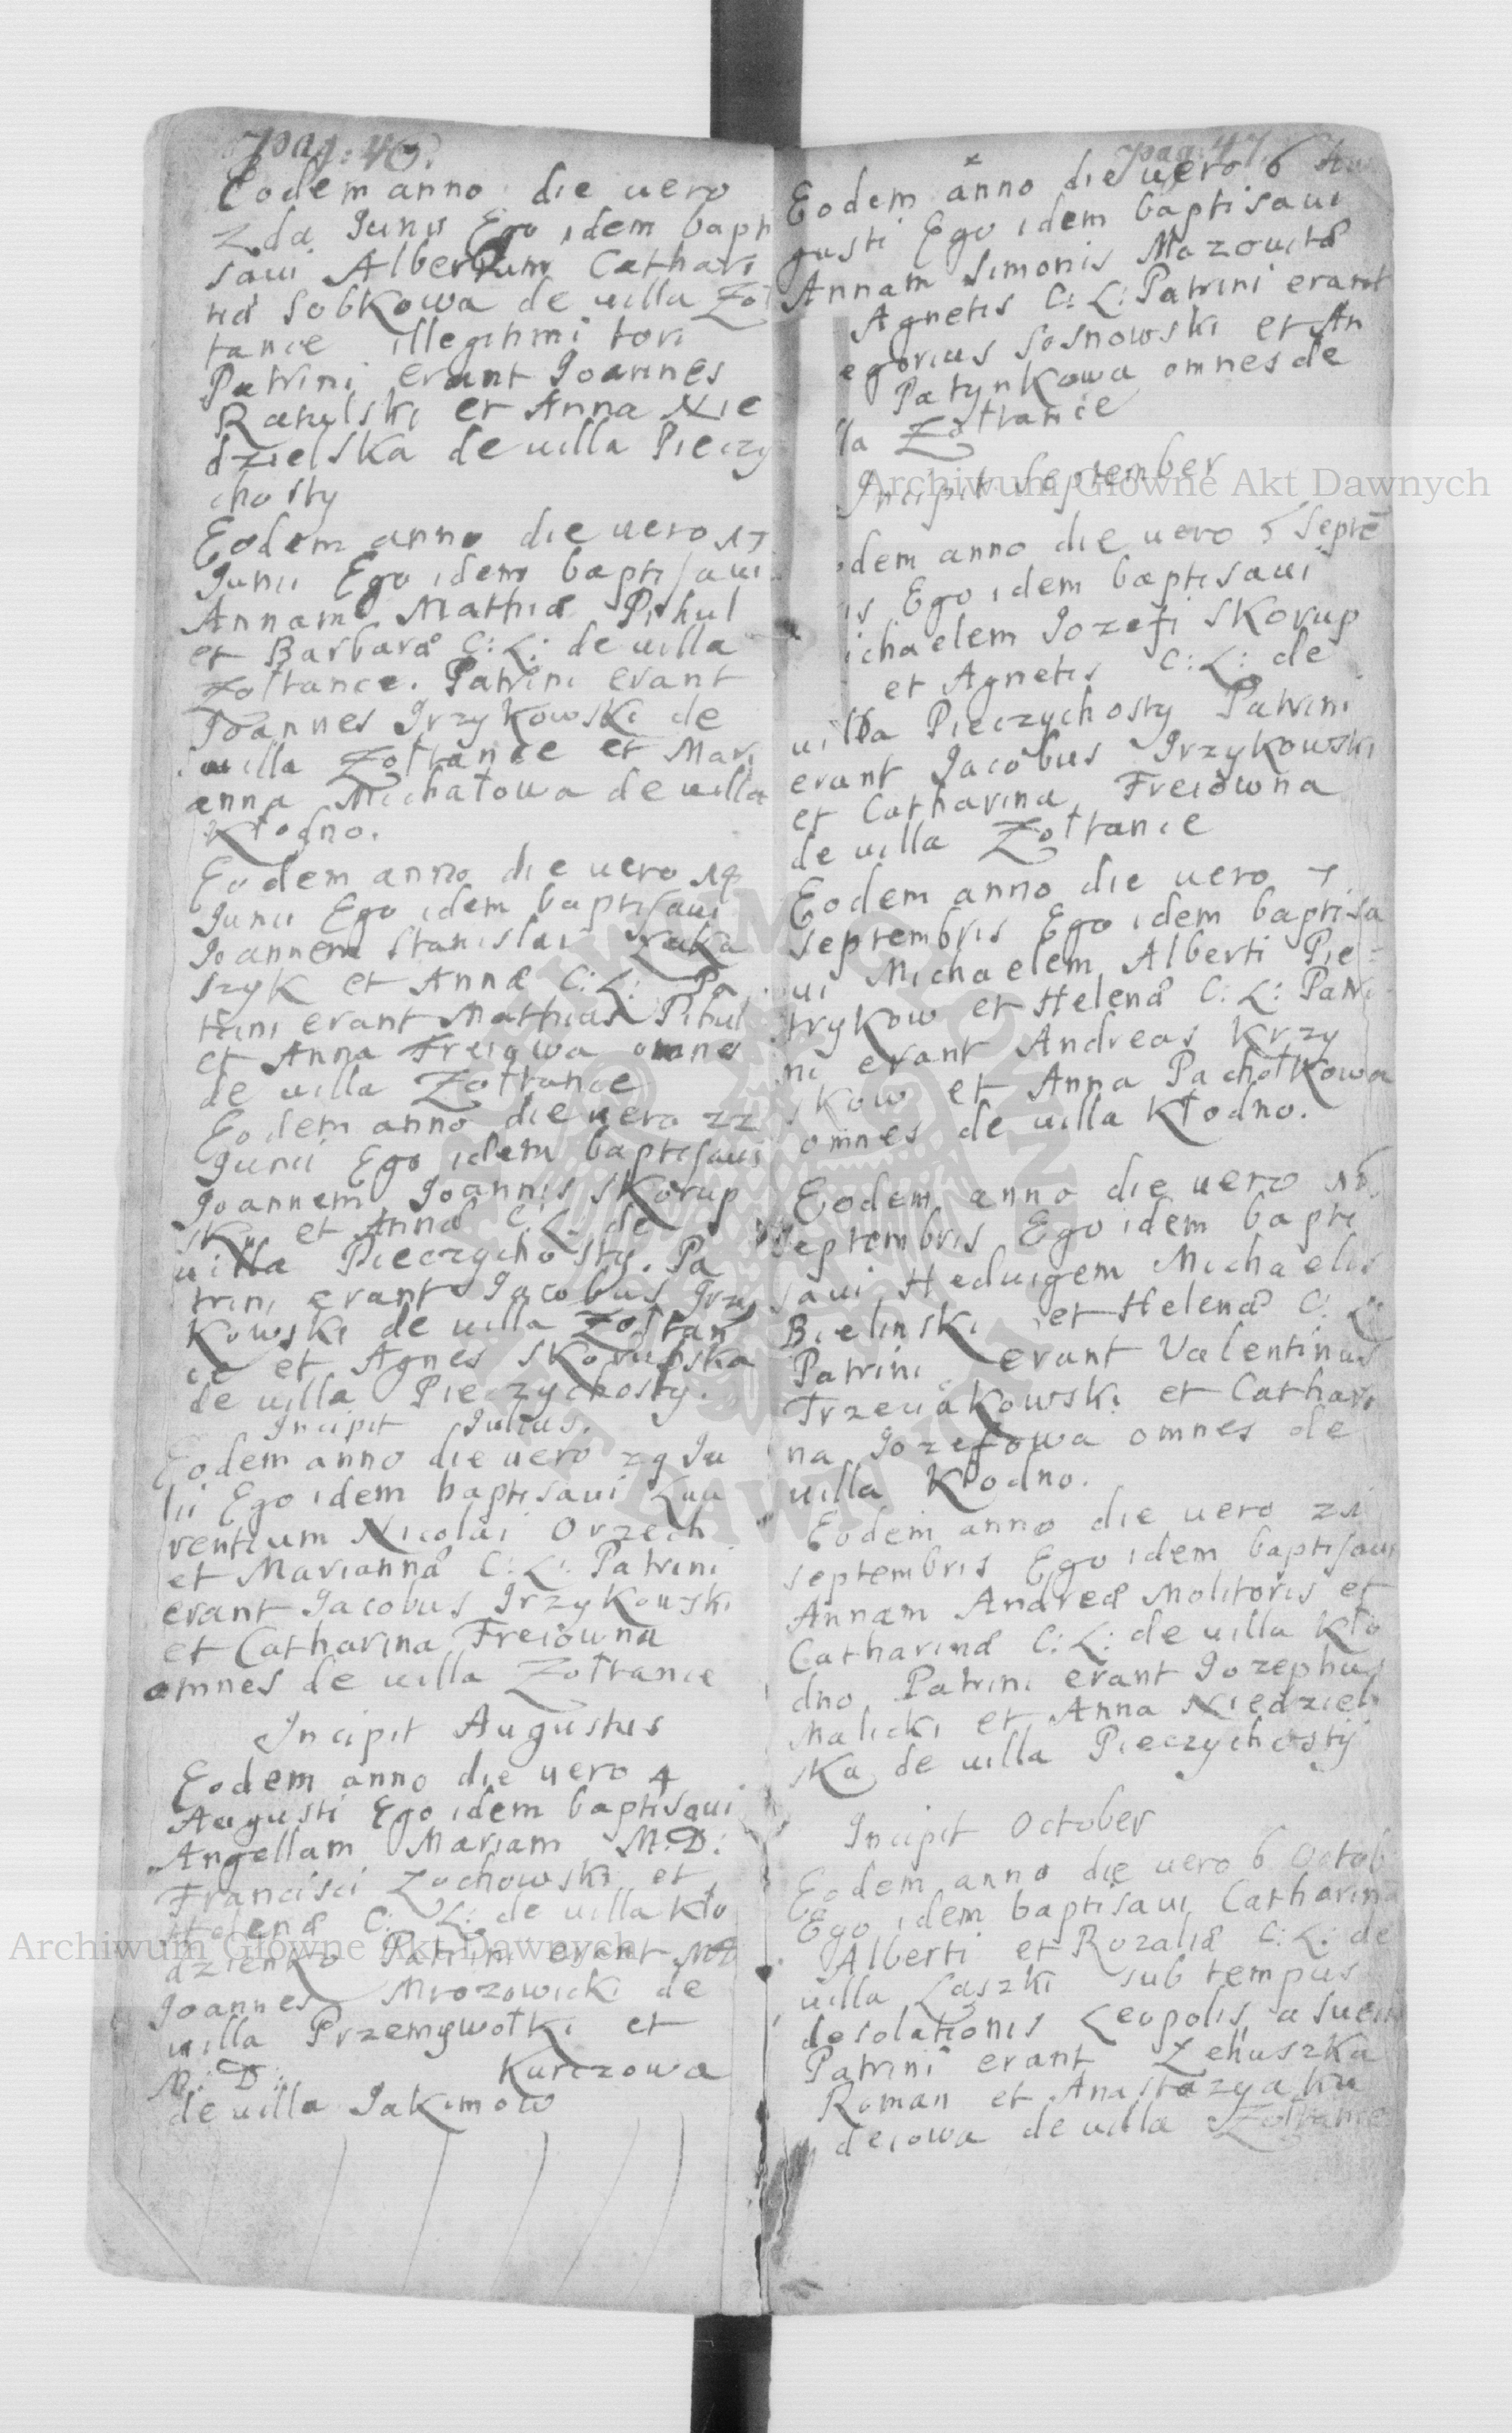 pag: 46.
Eodem anno die uero
2da Junii Ego idem bapti
saui Albertum Cathari
næ Sobkowa de uilla Zoł
tance illegitimi tori
Patrini erant Joannes
Ratulski et Anna Nie
dzielska de uilla Pieczy
chosty
Eodem anno die uero 17
Junii Ego idem baptisaui
Annam Mathiæ Pihul
et Barbaræ C: L: de uilla
Zołtance. Patrini erant
Joannes Jrzykowski de
uilla Zołtance et Mari
anna Michałowa de uilla
Kłodno.
Eodem anno die uero 19
Junii Ego idem baptisaui
Joannem Stanislai
szyk et Annæ C: L: Pa
trini erant Mathias Pihul
et Anna Freiowa omnes
de uilla Zołtance
Eodem anno die uero 22
Junii Ego idem baptisaui
Joannem Joannis Skorup
ski et Annæ C: L: de
uilla Pieczychosty. Pa
trini erant Jacobus Jrzy
kowski de uilla Zołtan
ce et Agnes Skorupska
de uilla Pieczychosty.
Incipit Julius.
Eodem anno die uero 29 Ju
lii Ego idem baptisaui Lau
rentium Nicolai Orzech
et Mariannæ C: L: Patrini
erant Jacobus Jrzykowski
et Catharina Freiowna
omnes de uilla Zołtance
Incipit Augustus
Eodem anno die uero 4
Augusti Ego idem baptisaui
Angellam Mariam M: D:
Francisci Zochowski et
Helenæ C: L: de uilla Kło
dzienko Patrini erant MD
Joannes Mrozowicki de
uilla Przemywołki et
M: D: Kurczowa
de uilla Jakimow
pag: 47.
Eodem anno die uero 6 Au
gusti Ego idem baptisaui
Annam Simonis Mazowitæ
Agnetis C: L: Patrini erant
egorius Sosnowski et An
Patynkowa omnes de
lla Zołtance
Incipit September
odem anno die uero 5 Septē
is Ego idem baptisaui
ichaelem Jozefi Skorup
et Agnetis C: L: de
uilla Pieczychosty Patrini
erant Jacobus Jrzykowski
et Catharina Freiowna
de uilla Zołtance
Eodem anno die uero 7
Septembris Ego idem baptisa
ui Michaelem Alberti Pie=
trykow et Helenæ C: L: Patri
ni erant Andreas Krzy
skow et Anna Pachołkowa
omnes de uilla Kłodno.
Eodem anno die uero 16
Septembris Ego idem bapti
saui Heduigem Michaelis
Bielinski et Helenæ C: L:
Patrini erant Valentinus
Trzeciakowski et Cathari
na Jozefowa omnes de
uilla Kłodno.
Eodem anno die uero 21
septembris Ego idem baptisaui
Annam Andreæ Molitoris et
Catharinæ C: L: de uilla Kło
dno Patrini erant Jozephus
Malicki et Anna Niedziel
ska de uilla Pieczychosty
Incipit October
Eodem anno die uero 6 Octob
Ego idem baptisaui Catharina
Alberti et Rozaliæ C: L: de
uilla Laszki sub tempus
desolationis Leopolis a Sueci
Patrini erant Lehuszka
Roman et Anastazya Ku
deiowa de uilla Zołtance
Archiwum Główne Akt Dawnych
Archiwum Główne Akt Dawnych